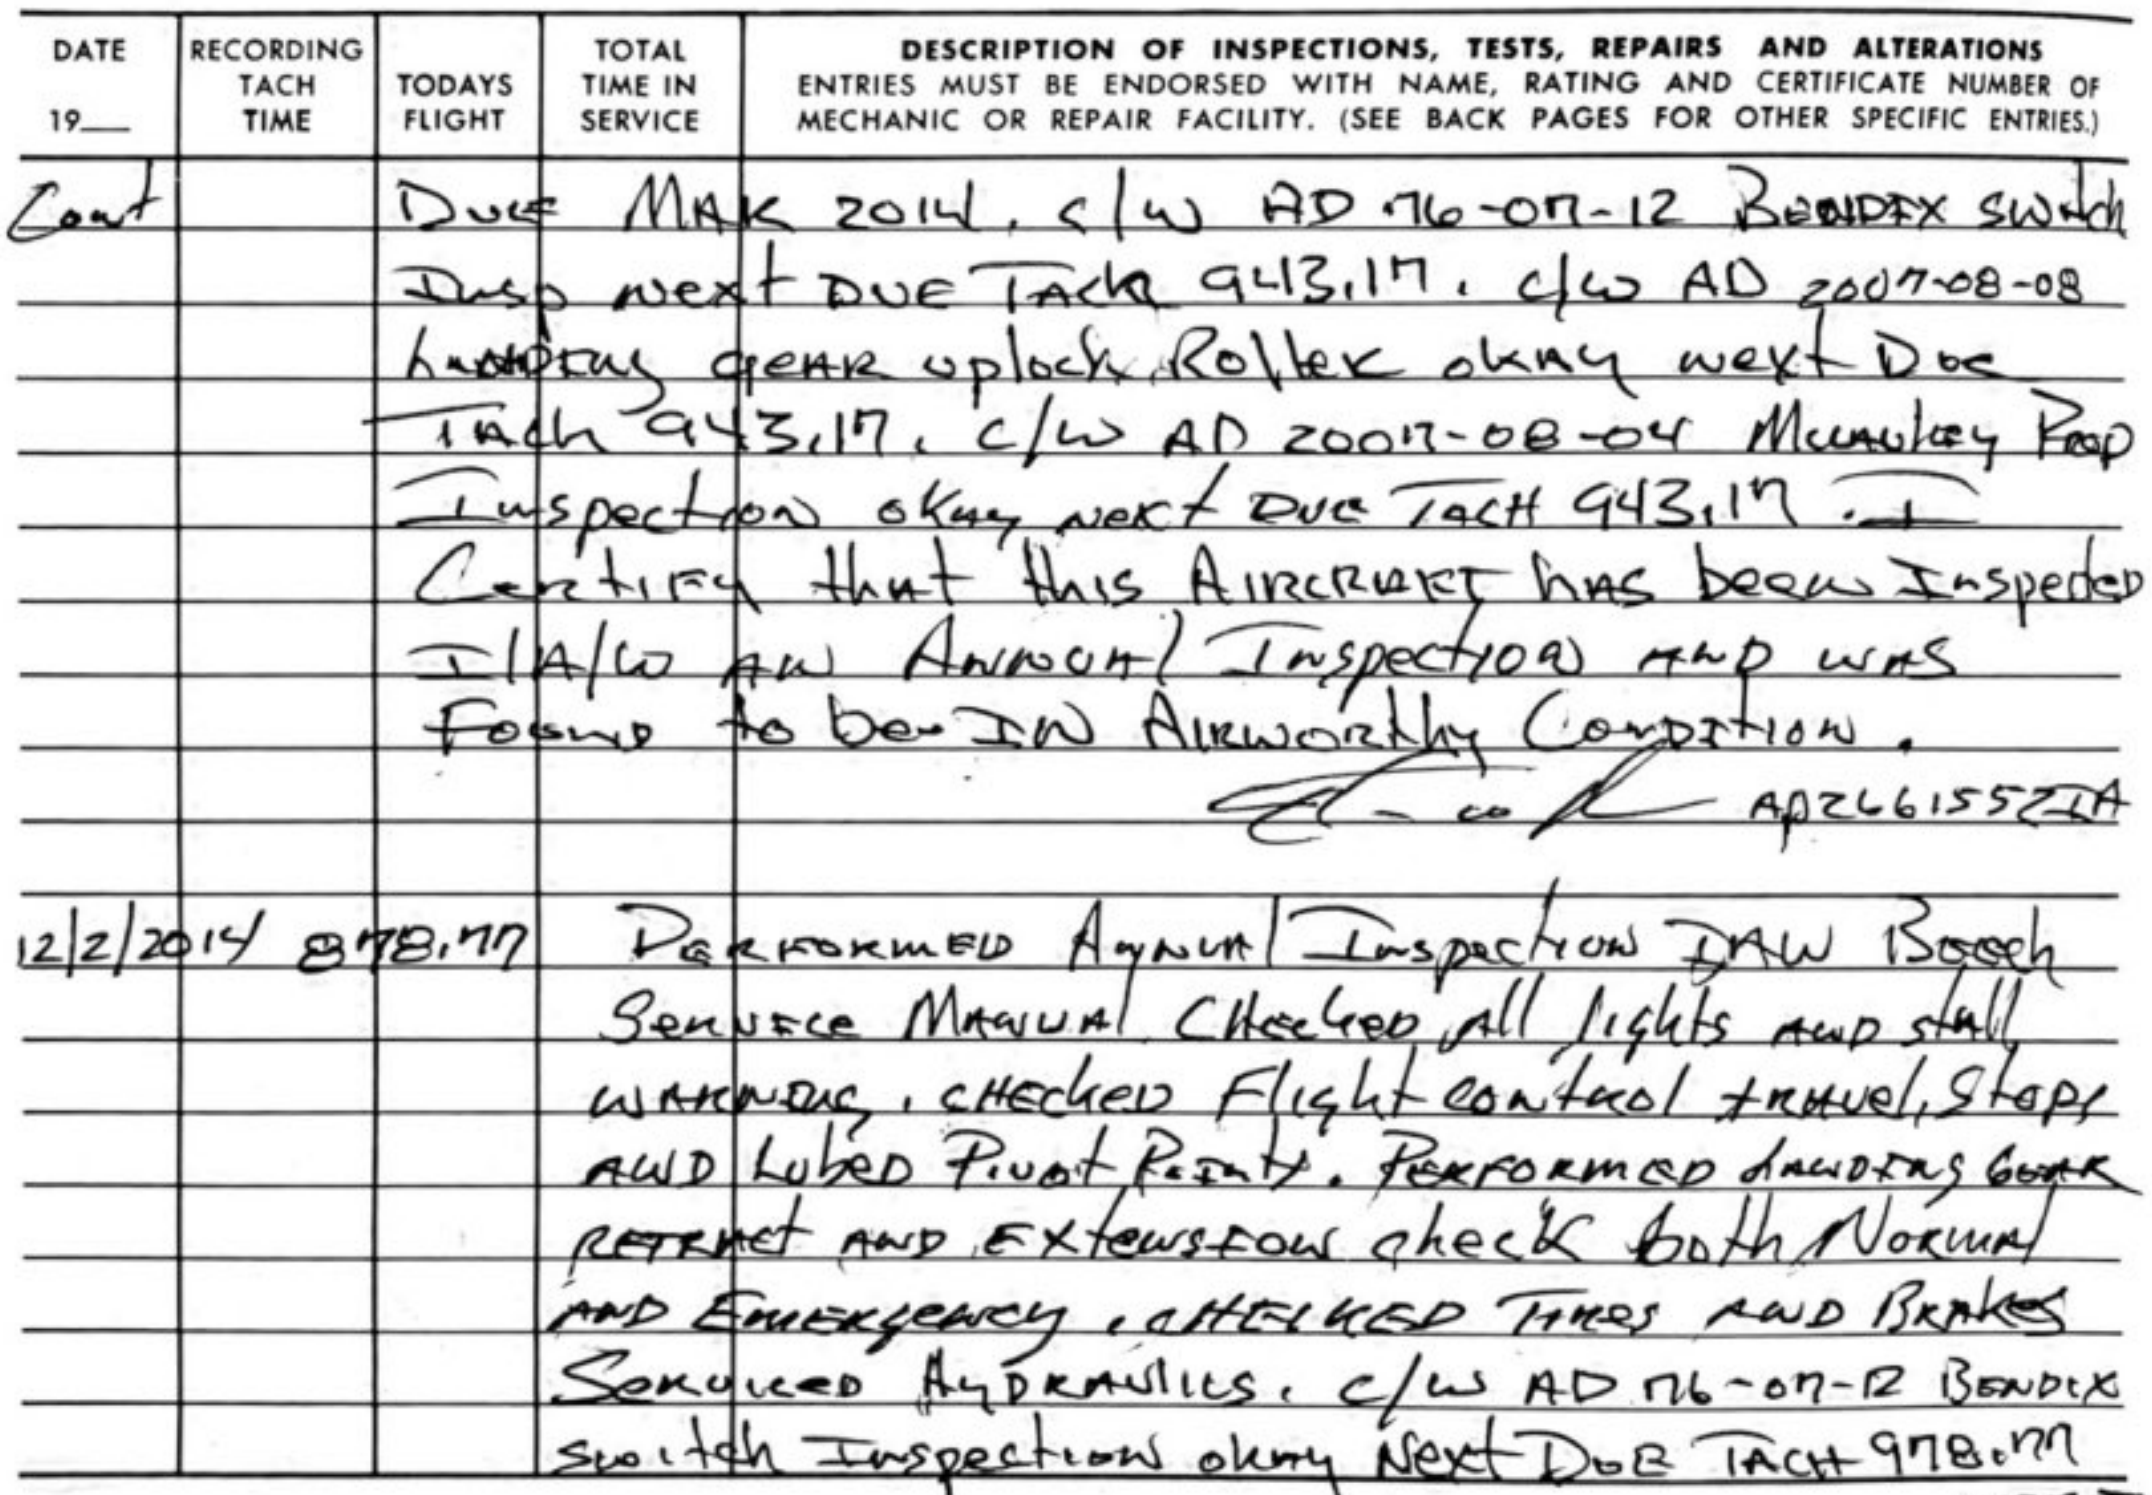 DATE
19__
RECORDING
TACH
TIME
TODAYS
FLIGHT
TOTAL
TIME IN
SERVICE
DESCRIPTION OF INSPECTIONS, TESTS, REPAIRS AND ALTERATIONS
ENTRIES MUST BE ENDORSED WITH NAME, RATING AND CERTIFICATE NUMBER OF
MECHANIC OR REPAIR FACILITY. (SEE BACK PAGES FOR OTHER SPECIFIC ENTRIES.)
Cont Due MAR 2014. c/w AD 76-07-12 BENDIX switch
Insp Next DUE Tach 943.17. c/w AD 2007-08-08
Landing gear uplock Roller okay next Due
Tach 943.17. c/w AD 2007-08-04 McCauley Prop
Inspection okay next Due TACH 943.17. I
Certify that this AIRCRAFT has been Inspected
I/A/W an Annual Inspection and was
Found to be IN Airworthy Condition.
AP2661552IA
12/2/2014 878.77 PERFORMED Annual Inspection IAW Beech
Service Manual CHecked All lights AND stall
WARNING. CHECKED Flight control travel, Stops
AND Lubed Pivot Points. PERFORMED Landing GEAR
RETRACT AND EXtension check both Normal
AND Emergency. CHECKED Tires AND BRAKES
Serviced HyDRAulics. c/w AD 76-07-12 BENDIX
switch Inspection okay Next DUE TACH 978.77